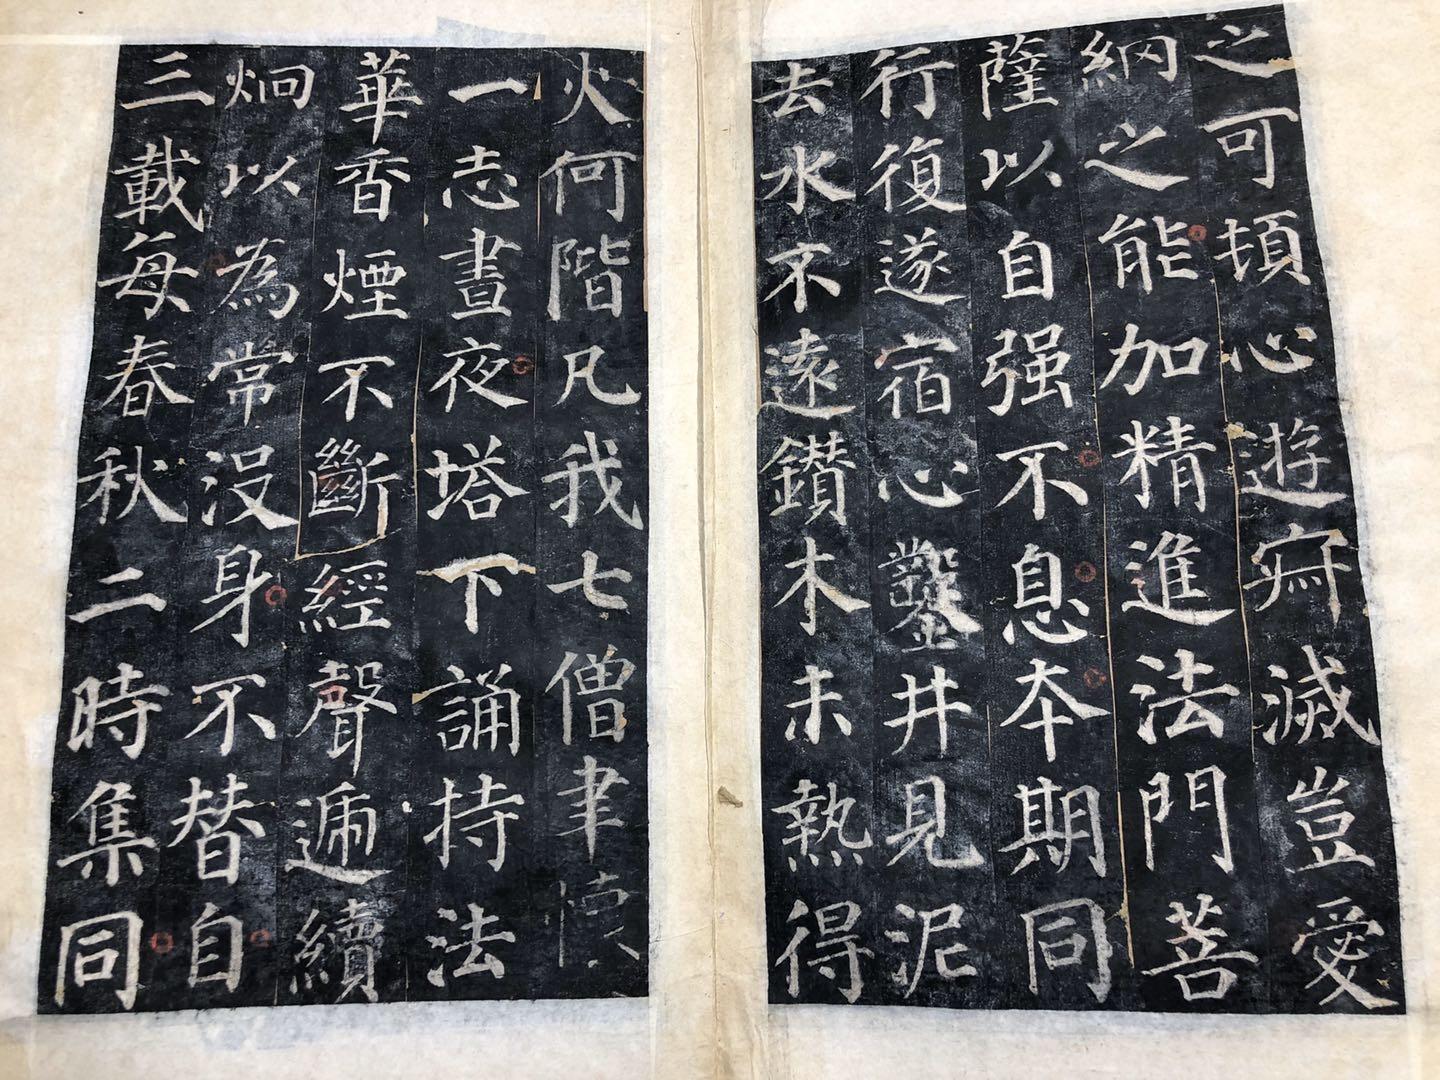 之可頓心遊寂滅豈愛
網之能加精進法門菩
薩以自强不息本期同
行復遂宿心鑿井見泥
去水不遠鑽木未熱得
火何階凡我七僧聿懷
一志晝夜塔下誦持法
華香煙不斷經聲遞續
炯以為常沒身不替自
三載每春秋二時集同